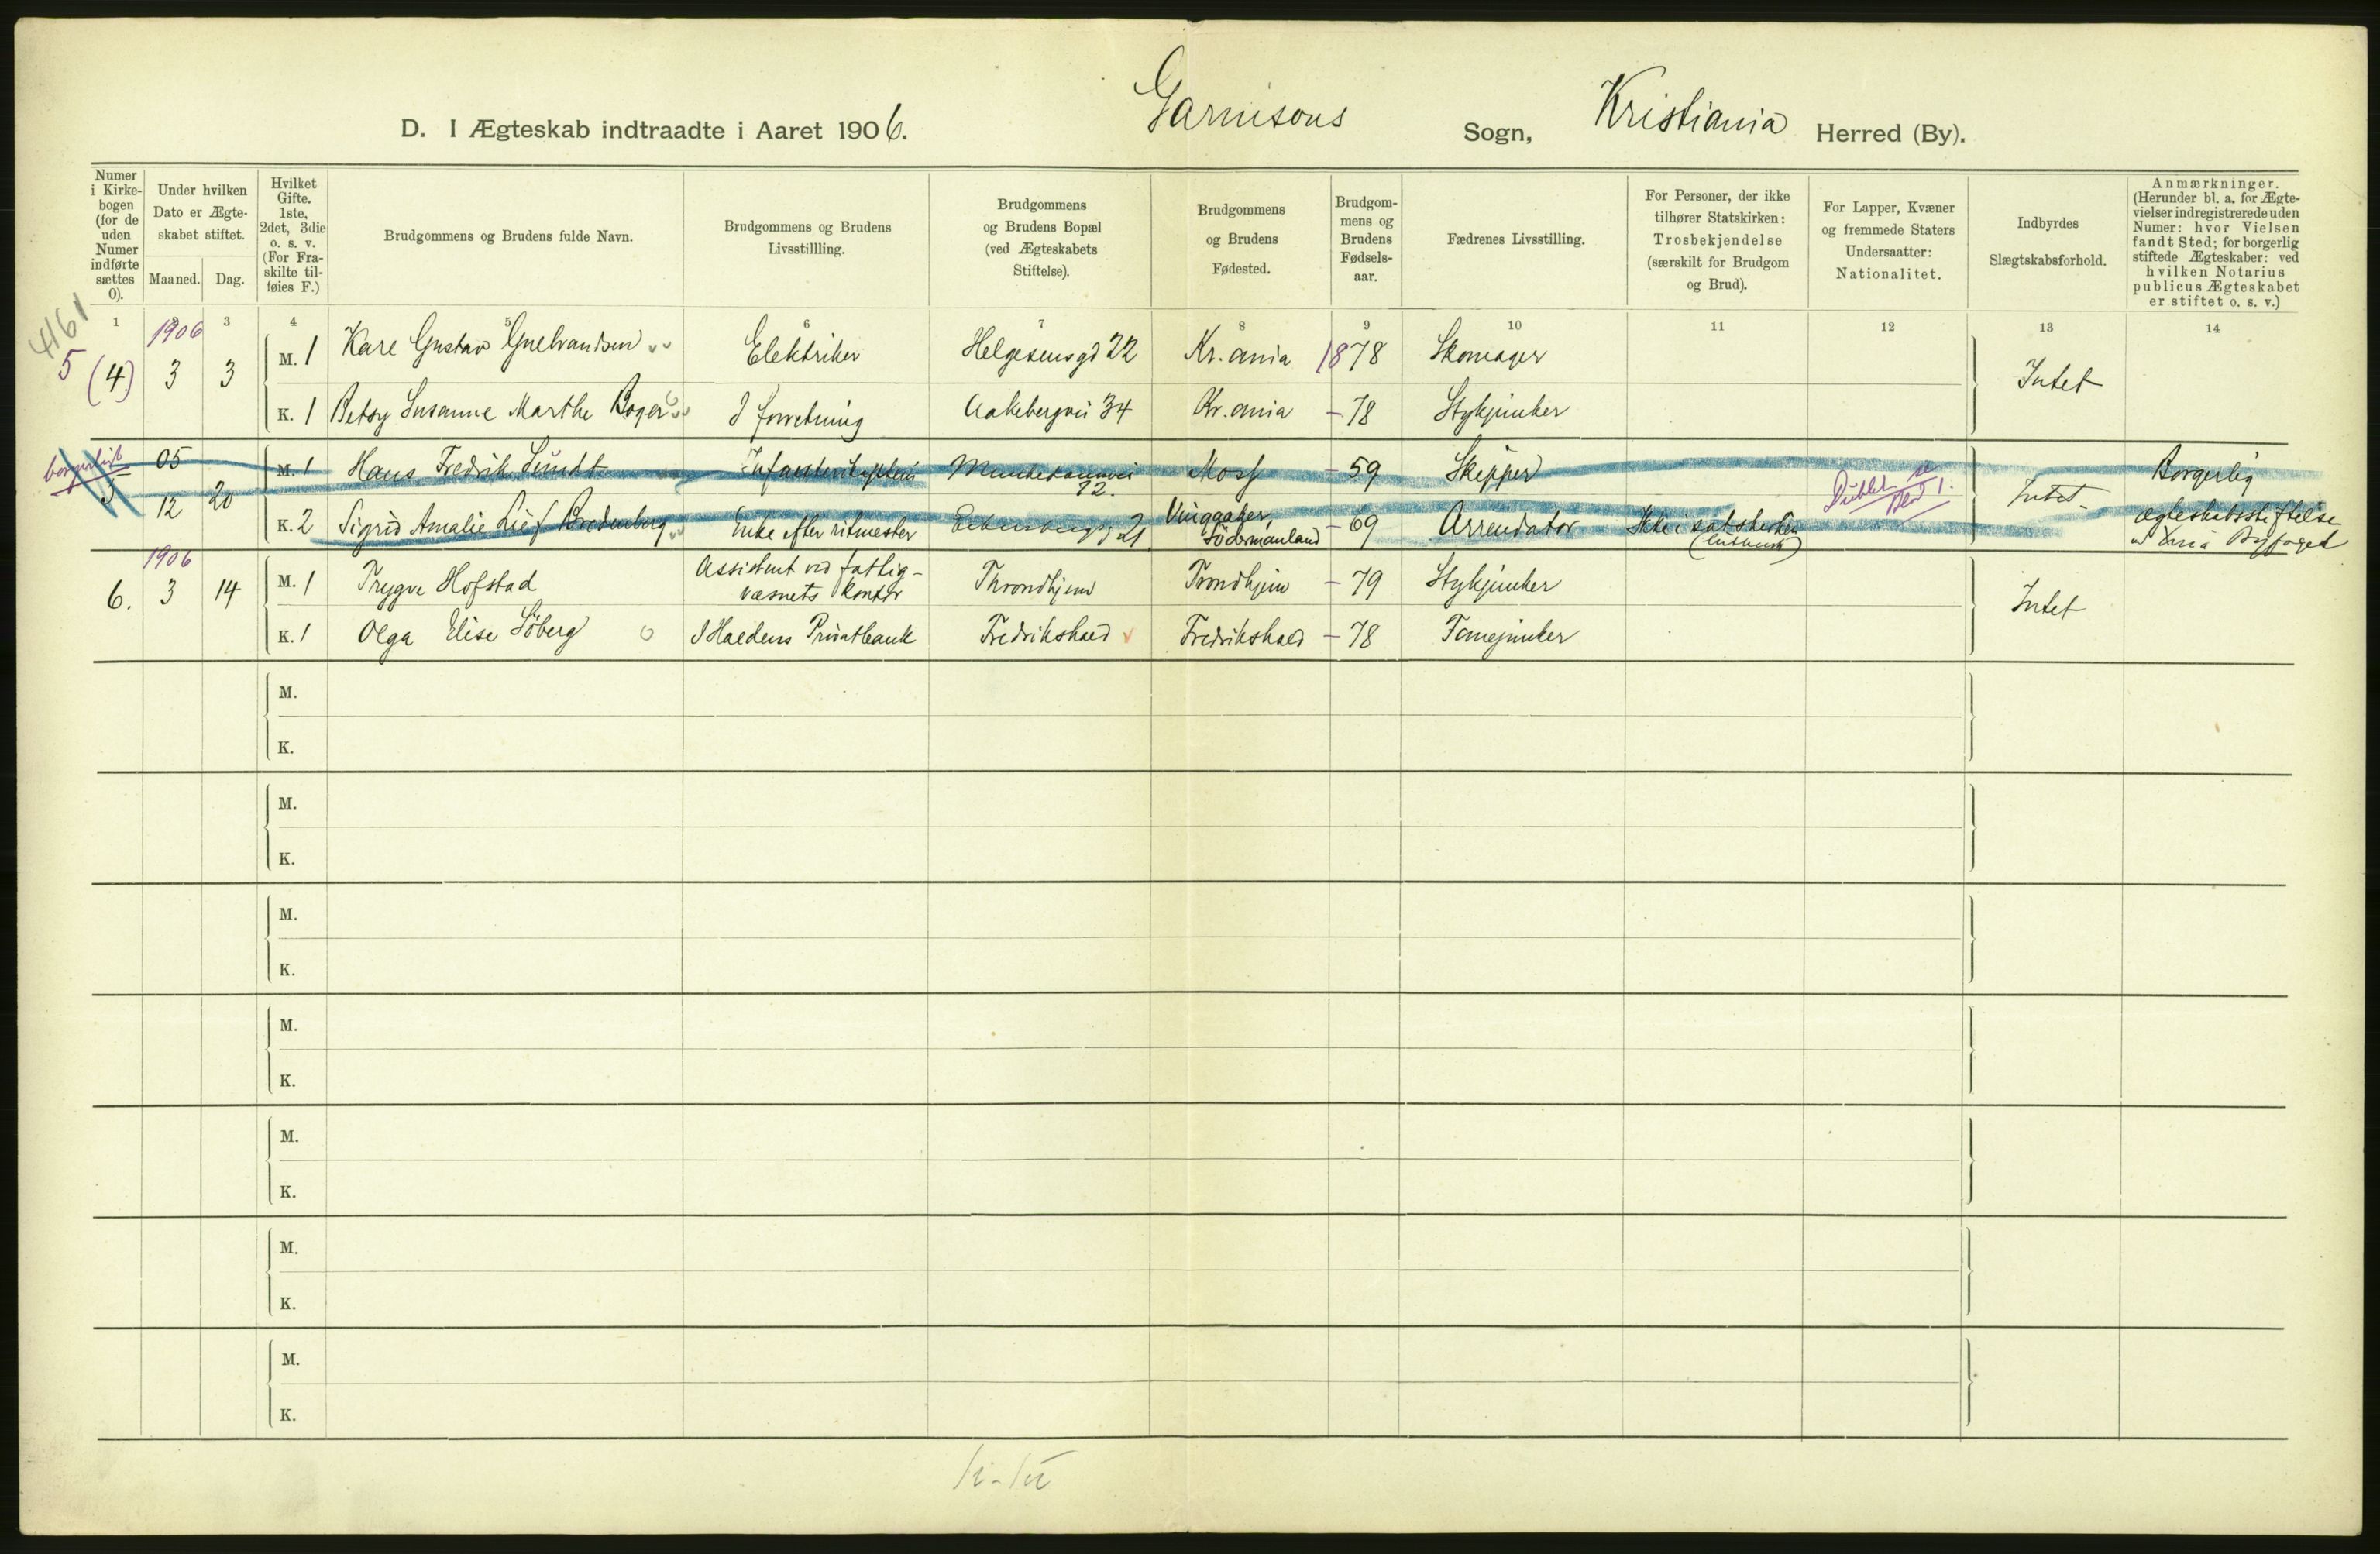 D. I Ægteskab indtraadte i Aaret 1906. Garnisons Sogn, Kristiania Herred (By).
Numer i Kirkebogen (for de uden Numer indførte sættes 0).
Under hvilken Dato er Ægteskabet stiftet.
Maaned. Dag.
Hvilket Gifte. 1ste, 2det, 3die o. s. v. (For Fraskilte tilføies F.)
Brudgommens og Brudens fulde Navn.
Brudgommens og Brudens Livsstillling.
Brudgommens og Brudens Bopæl (ved Ægteskabets Stiftelse).
Brudgommens og Brudens Fødested.
Brudgommens og Brudens Fødselsaar.
Fædrenes Livsstilling.
For Personer, der ikke tilhører Statskirken: Trosbekjendelse (særskilt for Brudgom og Brud).
For Lapper, Kvæner og fremmede Staters Undersaatter: Nationalitet.
Indbyrdes Slægtskabsforhold.
Anmærkninger. (Herunder bl. a. for Ægtevielser indregistrerede uden Numer: hvor Vielsen fandt Sted; for borgerlig stiftede Ægteskaber: ved hvilken Notarius publicus Ægteskabet er stiftet o. s. v.)
1 2 3 4 5 6 7 8 9 10 11 12 13 14
4161
1906
5 (4) 3 3 M. 1 Kare Gustav Elektriker Helgesensgd 22 Kr.ania 1878 Skomager Intet
K. 1 Betsy Susanne Marthe Boger I forretning Aakebergvei 34 Kr.ania - 78 Stykjunker
borgerligt 5 05 12 20 M. 1 Hans Fredrik Infanterikaptein 12. Moss - 59 Skipper Dublet se Bled 1. Intet Borgerlig
K. 2 Sigrid Amalie Enke efter ritmester 21 Vinggaker, Södermanland - 69 Arrendator Ikke i statskirken Ægteskabsstiftelse Byfoged
1906
6. 3 14 M. 1 Trygve Hofstad Assistent ved fattigvæsnets kontor Throndhjem Trondhjem - 79 Stykjunker Intet
K. 1 Olga Elise Söberg I Haldens Privatbank Fredrikshald Fredrikshald - 78 Fanejunker
M.
K.
M.
K.
M.
K.
M.
K.
M.
K.
M.
K.
M.
K.